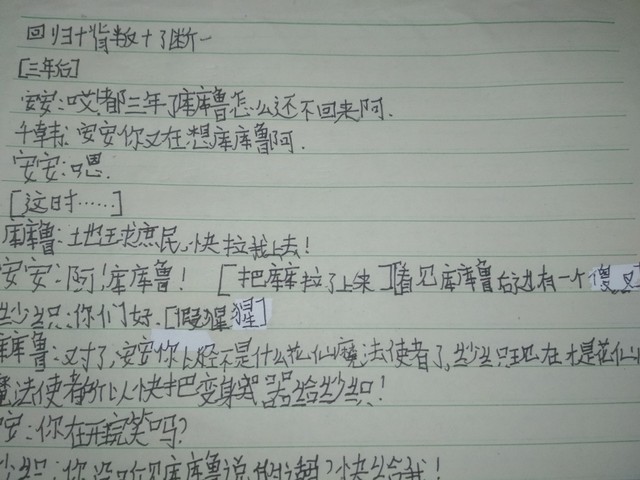 回归+背叛+了断一
[三年后]
安安:哎!都三年了库库鲁怎么还不回来阿.
千韩:安安你又在想库库鲁阿.
安安:嗯.
[这时……]
库库鲁:地球庶民,快拉我上去!
安安:阿!库库鲁![把库库拉了上来][看见库库鲁右边有一个傻又
纱织:你们好.[假猩猩]
库鲁:对了,安安你以经不是什么花仙魔法使者了,纱织现在才是花仙
魔法使者所以快把变身器给纱织!
安:你在开玩笑吗?
纱织:你没听见库库鲁说的话吗?快给我!